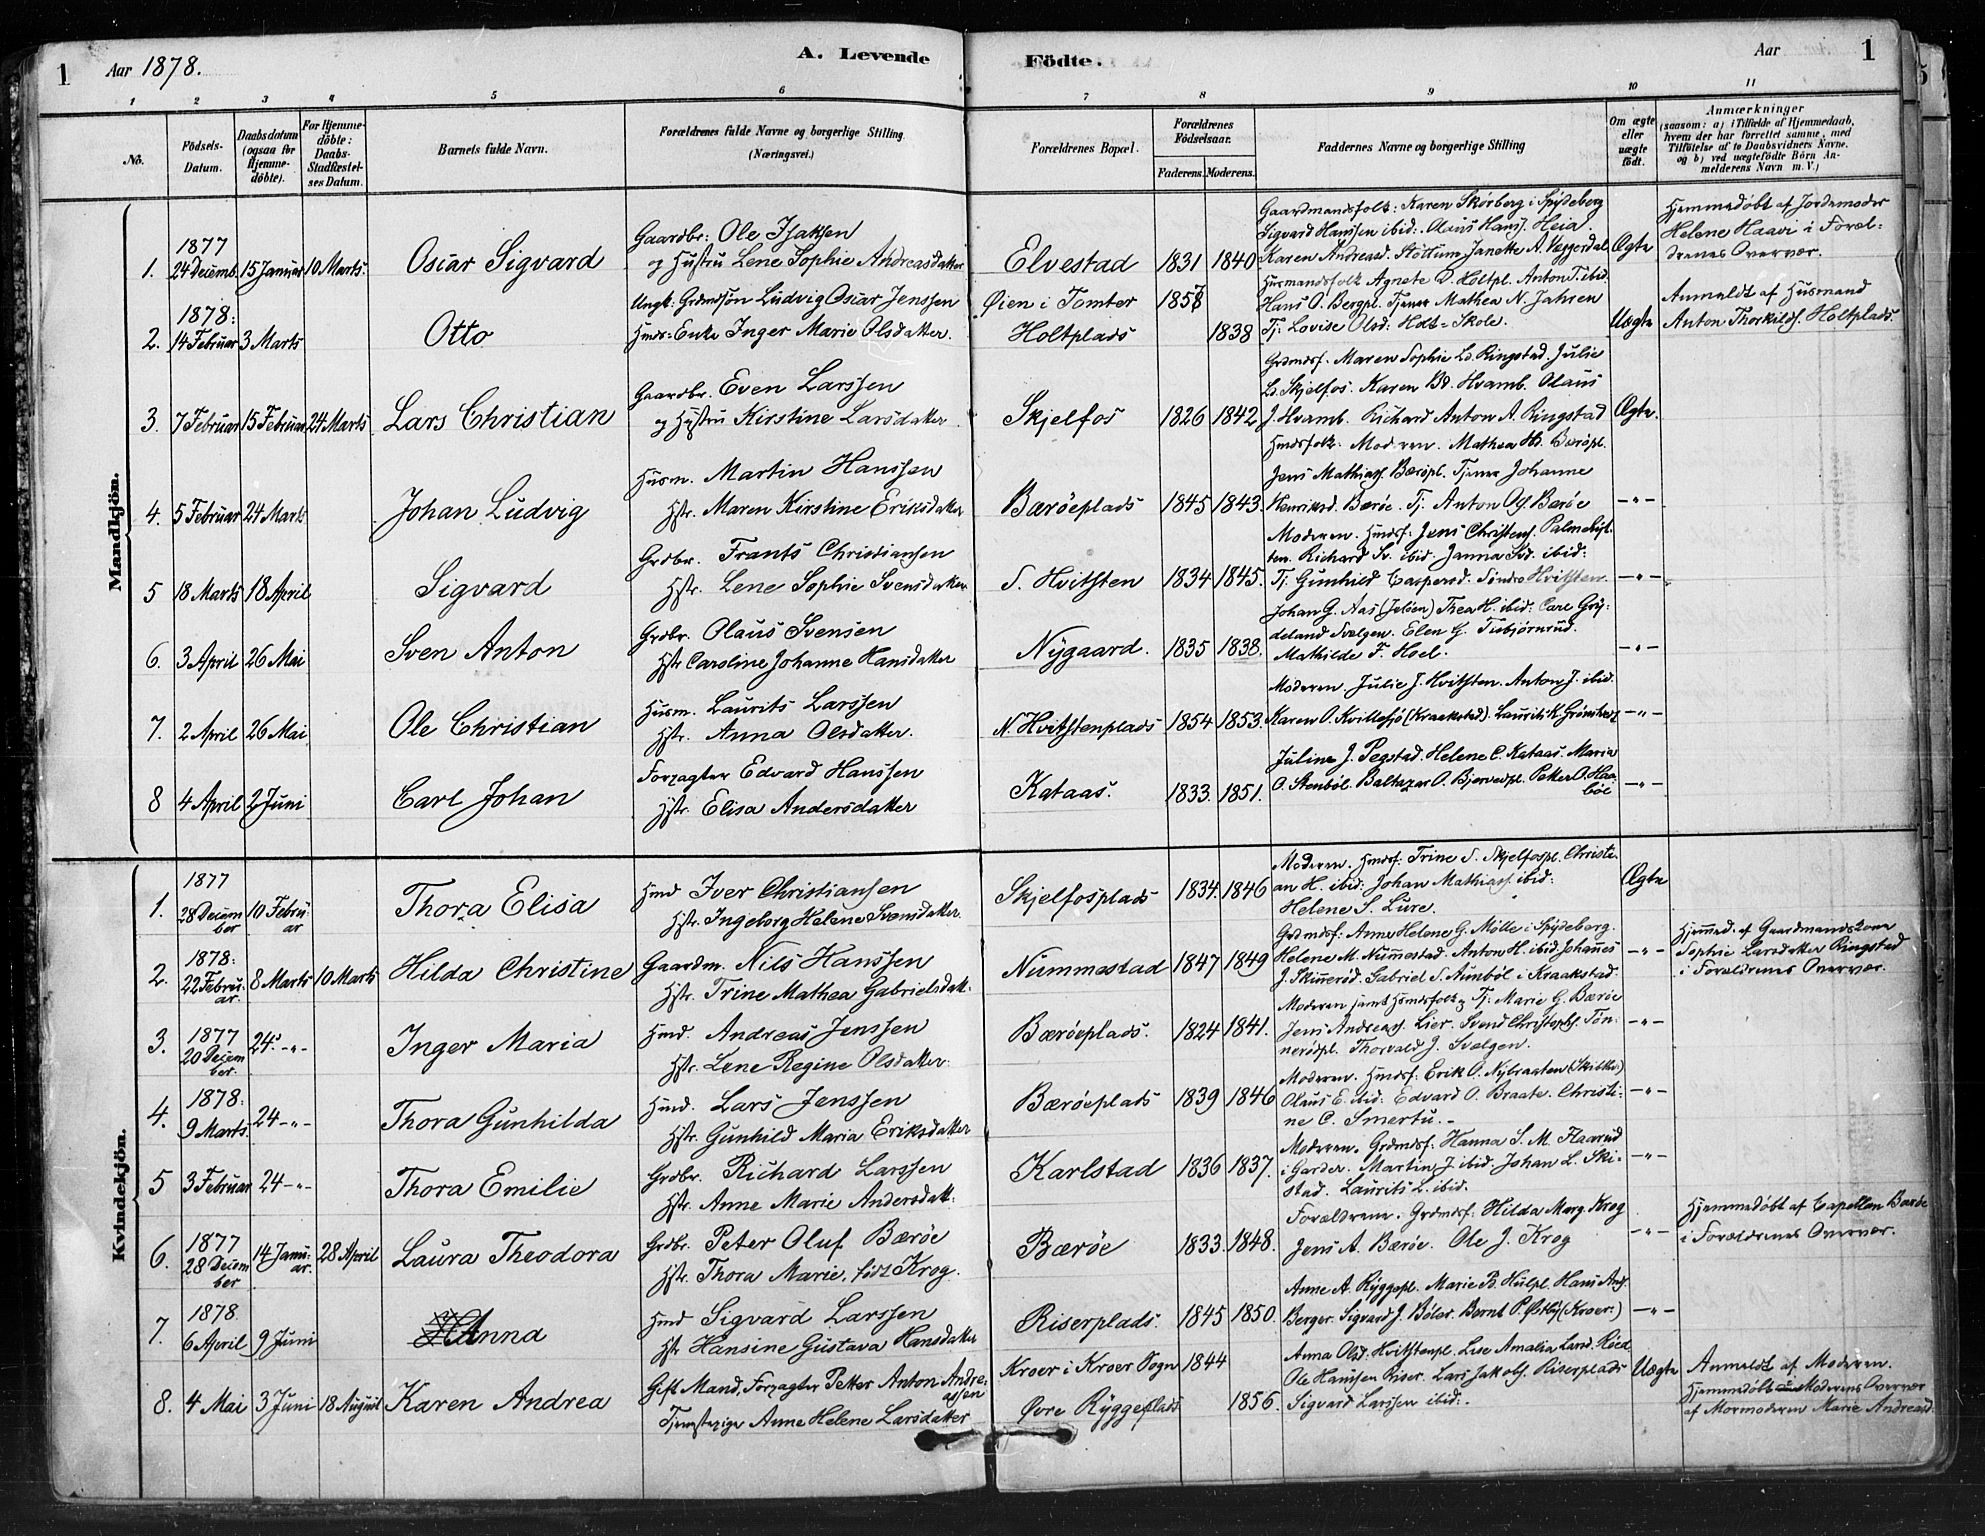 1 Aar 1878. A. Levende Födte. Aar 1
1 2 3 4 5 6 7 8 9 10 11
No.
Födsels-Datum.
Daabsdatum (ogsaa for Hjemme-döbte).
For Hjemme-döbte: Daabs-Stadfæstel-ses Datum.
Barnets fulde Navn.
Forældrenes fulde Navne og borgerlige Stilling.
(Næringsvei.)
Forældrenes Bopæl.
Forældrenes Födselsaar.
Faderens. Moderens.
Faddernes Navne og borgerlige Stilling
Om ægte eller uægte födt.
Anmærkninger
(saasom: a) i Tilfælde af Hjemmedaab,
hvem der har forrettet samme, med
Tilföielse af to Daabsvidners Navne.
og b) ved uægtefödte Börn An-
melderens Navn m. V.)
Mandkjön.
1. 1877 24 Decemb. 15 Januar 10 Marts. Oscar Sigvard
Gaardbr: Ole Isaksen
og Hustru Lene Sophie Andreasdatter
Elvestad 1831 1840
Gaardmandsfolk: Karen Skorberg i Spydeberg
Sigvard Hanssen ibid: Olaus Hanss. Heia
Karen Andreasd. Slottum Janette A. Væggerdal
Ægte
Hjemmedøbt af Jordemoder
Helene Haavi i Foræl-
drenes Overvær.
2. 1878: 14 Februar 3 Marts Otto
Ungk: Grdmdsøn Ludvig Oscar Jenssen
Hmds: Enke Inger Marie Olsdatter.
Øien i Tomter 1857
Holtplads 1838
Husmandsfolk Agnete D. Holtpl. Anton T. ibid.
Hans O. Bergpl. Tjener Mathea N. Jahren
Tj. Lovise Olsd: Hdt=Skole.
Uægte
Anmeldt af Husmand
Anton Thorkilds. Holtplads.
3. 7 Februar 15 Februar 24 Marts Lars Christian
Gaardbr. Even Larssen
og Hustru Kirstine Larsdatter.
Skjelfos 1826 1842
Grdmdsf. Maren Sophie Ld. Ringstad. Julie
Ld. Skjelfos. Karen Bd. Hvamb. Olaus
J. Hvamb. Richard Anton A. Ringstad
Ægte.
4. 5 Februar 24 Marts Johan Ludvig
Husm. Martin Hanssen
Hstr. Maren Kirstine Eriksdatter
Bærøeplads 1845 1843.
Hmdsfolk: Moderen. Mathea Hd. Bærøpl.
Jens Mathiass. Bærøpl. Tjener Johanne
Henriksd. Bærøe. Tj. Anton Ols. Bærøe
-"-
5 18 Marts 18 April Sigvard
Grdbr. Frants Christiansen
Hstr. Lene Sophie Svensdatter
S. Hvitsten 1834 1845.
Moderen. Hmdsf: Jens Christens. Palmehyt-
ten. Richard Sv. ibid. Janna Sd. ibid:
Tj. Gunhild Caspersd. Søndre Hvitsten.
-"-
6. 3 April 26 Mai Sven Anton
Grdbr. Olaus Svensen
Hstr Caroline Johanne Hansdatter
Nygaard. 1835 1838.
Johan G. Aas (Jeløen) Thea H. ibid: Carl Gry-
deland Svælgen. Elen G. Tiebjørnrud.
Mathilde F. Hoel.
-"-
7. 2 April 26 Mai Ole Christian
Husm. Laurits Larssen
Hstr. Anna Olsdatter.
N. Hvitstenplads 1854 1853.
Moderen. Julie J. Hvitsten. Anton J. ibid.
Karen O. Kvillesjö (Kraakstad). Laurits K.
-"-
8 4 April 2 Juni Carl Johan
Forpagter Edvard Hanssen
Hstr. Elisa Andersdatter
Kataas. 1833. 1851.
Juline J. Pegstad. Helene C. Kataas. Maria
O. Stenbøl. Balthazar O. Bjervedpl. Petter O. Haa-
bøl
-"-
Kvindekjön.
1. 1877 28 Decem ber 10 Febru: ar Thora Elisa
Hmd Iver Christiansen
Hstr. Ingeborg Helene Svensdatter.
Skjelfosplads 1834. 1846
Moderen. Hmdsf: Trine S. Skjelfospl. Christi-
an H. ibid: Johan Mathiass. ibid:
Helene S. Lure.
Ægte
2. 1878: 22 Febru: ar. 8 Marts 10 Marts Hilda Christine
Gaardm. Nils Hanssen
Hstr. Trine Mathea Gabrielsdatt.
Nummestad 1847 1849
Grdmdsf: Anne Helene G. Mølle i Spydeberg.
Helene M. Nummestad. Anton H. ibid. Johannes
J. Skinnerød. Gabriel S. Aunbøl i Kraakstad.
-"-
Hjemmed. af Gaardmandskone
Sophie Larsdatter Ringstad
i Forældrenes Overvær.
3. 1877 20 Decem ber. 24. -"- Inger Maria
Hmd. Andreas Jenssen
Hstr. Lene Regine Olsdatter.
Bærøeplads. 1824 1841.
Moderen samt Hsmdsfolk: Tj: Marie G. Bærøe
Jens Andreass. Lier. Svend Christophs. Tøn-
nerødpl. Thorvald J. Svælgen.
-"-
4. 1878: 9 Marts 24 -"- Thora Gunhilda
Hmd. Lars Jenssen
Hstr. Gunhild Maria Eriksdatter
Bærøeplads 1839 1846
Moderen. Hmdsf: Erik O. Nybraaten (Skibtv.)
Olaus E. ibid: Edvard O. Braate. Christi-
ne C. Smertu.-
-"-
5 3 Februar 24 -"- Thora Emilie
Grdbr. Richard Larssen
Hstr. Anne Marie Andersdatt.
Karlstad 1836 1837.
Moderen. Grdmdsf: Hanna S. M. Flaarud
i Garder. Martin J. ibid. Johan L. Ski-
stad. Laurits L. ibid.
-"-
6. 1877 28 Decem ber 14 Janu: ar. 28 April Laura Theodora
Grdbr. Peter Oluf Bærøe
Hstr. Thora Marie, født Krog.
Bærøe 1833. 1848.
Forældrene. Grdmdsf: Hilda Marg Krog
Jens A. Bærøe. Ole J. Krog
-"-
Hjemmedøbt af Capellan Bærøe
i Forældrenes Overvær.
7. 1878. 6 April 9 Juni Anna
Hmd Sigvard Larssen
Hstr Hansine Gustava Hansdatter
Riserplads. 1845 1850.
Anne A. Ryggepl. Marie Bd. Hulpl. Hans Ands.
Berger. Sigvard J. Bøler. Bernt P. Østby (Kroer:)
-"-
8. 4 Mai 3 Juni 18 August Karen Andrea
Gift Mand, Forpagter Petter Anton Andre-
assen
Tjenestepige Anne Helene Larsdatter
Kroer i Kroer Sogn 1844
Øvre Ryggeplads 1856.
Anna Olsd. Hvitstenpl. Lise Amalia Larsd. Røed
Ole Hansen Riser. Lars Jakobs. Riserplads
Sigvard Larssen ibid:.
Uægte
Anmeldt af Moderen.
Hjemmedøbt i Moderens Overvær
af Mormoderen Marie Andreasd: